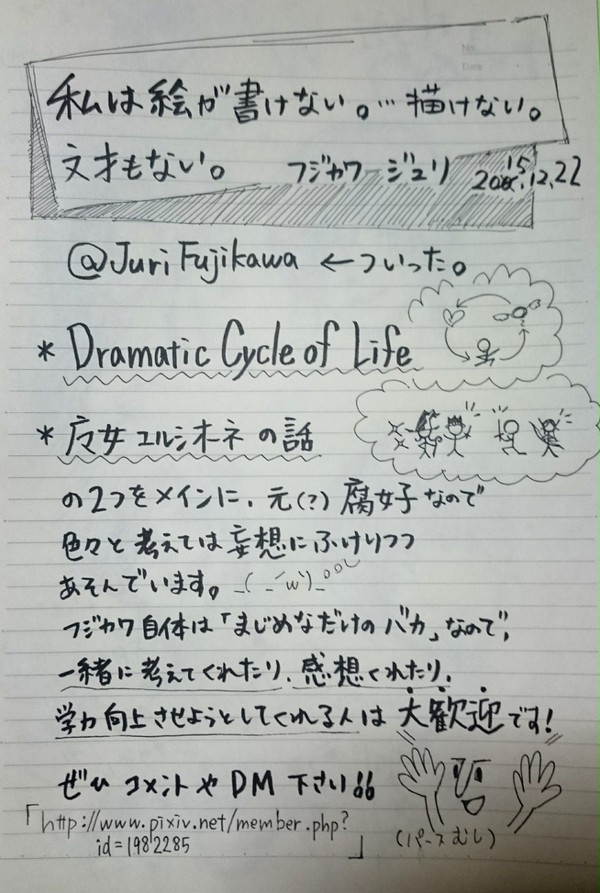 私は絵が書けない。…描けない。
文才もない。 フジカワ ジュリ 2015.12.22
@JuriFujikawa ←ついった。
* Dramatic Cycle of Life
* 广女エルシオネの話
の2つをメインに、元(?)腐女子なので
色々と考えては妄想にふけりつつ
あそんでいます。_(:_´ω`)_
フジカワ自体は「まじめなだけのバカ」なので、
一緒に考えてくれたり、感想くれたり、
学力向上させようとしてくれる人は大歓迎です!
ぜひ コメントや DM 下さい
「http://www.pixiv.net/member.php?
id=1982285 」
(パース むし)